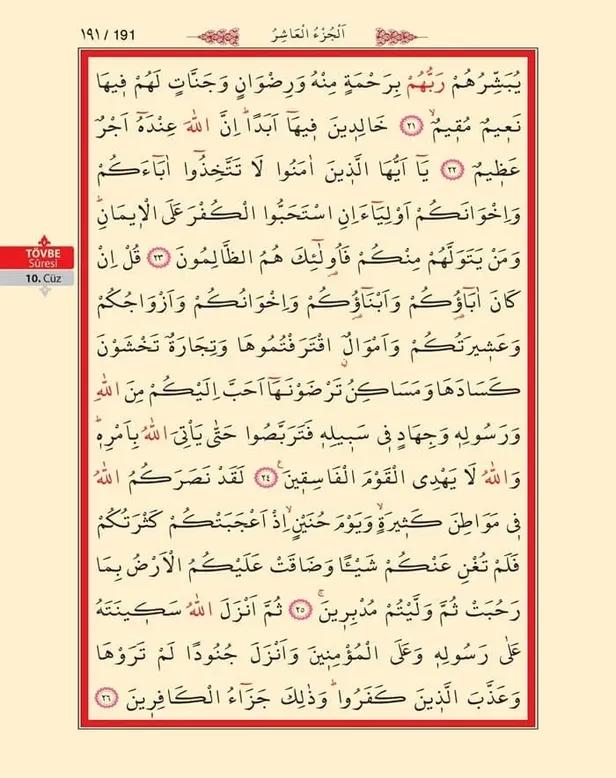 ١٩١ / 191
اَلْجُزْءُ الْعَاشِرُ
يُبَشِّرُهُمْ رَبُّهُمْ بِرَحْمَةٍ مِنْهُ وَرِضْوَانٍ وَجَنَّاتٍ لَهُمْ ف۪يهَا
نَع۪يمٌ مُق۪يمٌۙ ٢١ خَالِد۪ينَ ف۪يهَٓا اَبَدًاۜ اِنَّ اللّٰهَ عِنْدَهُٓ اَجْرٌ
عَظ۪يمٌ ٢٢ يَٓا اَيُّهَا الَّذ۪ينَ اٰمَنُوا لَا تَتَّخِذُٓوا اٰبَٓاءَكُمْ
وَاِخْوَانَكُمْ اَوْلِيَٓاءَ اِنِ اسْتَحَبُّوا الْكُفْرَ عَلَى الْا۪يمَانِۜ
وَمَنْ يَتَوَلَّهُمْ مِنْكُمْ فَاُو۬لٰٓئِكَ هُمُ الظَّالِمُونَ ٢٣ قُلْ اِنْ
كَانَ اٰبَٓاؤُ۬كُمْ وَاَبْنَٓاؤُ۬كُمْ وَاِخْوَانُكُمْ وَاَزْوَاجُكُمْ
وَعَش۪يرَتُكُمْ وَاَمْوَالٌۨ اقْتَرَفْتُمُوهَا وَتِجَارَةٌ تَخْشَوْنَ
كَسَادَهَا وَمَسَاكِنُ تَرْضَوْنَهَٓا اَحَبَّ اِلَيْكُمْ مِنَ اللّٰهِ
وَرَسُولِه۪ وَجِهَادٍ ف۪ي سَب۪يلِه۪ فَتَرَبَّصُوا حَتّٰى يَأْتِيَ اللّٰهُ بِاَمْرِه۪ۜ
وَاللّٰهُ لَا يَهْدِي الْقَوْمَ الْفَاسِق۪ينَ۟ ٢٤ لَقَدْ نَصَرَكُمُ اللّٰهُ
ف۪ي مَوَاطِنَ كَث۪يرَةٍۙ وَيَوْمَ حُنَيْنٍۙ اِذْ اَعْجَبَتْكُمْ كَثْرَتُكُمْ
فَلَمْ تُغْنِ عَنْكُمْ شَيْـًٔا وَضَاقَتْ عَلَيْكُمُ الْاَرْضُ بِمَا
رَحُبَتْ ثُمَّ وَلَّيْتُمْ مُدْبِر۪ينَۚ ٢٥ ثُمَّ اَنْزَلَ اللّٰهُ سَك۪ينَتَهُ
عَلٰى رَسُولِه۪ وَعَلَى الْمُؤْمِن۪ينَ وَاَنْزَلَ جُنُودًا لَمْ تَرَوْهَا
وَعَذَّبَ الَّذ۪ينَ كَفَرُواۜ وَذٰلِكَ جَزَٓاءُ الْكَافِر۪ينَ ٢٦
TÖVBE
Sûresi
10. Cüz